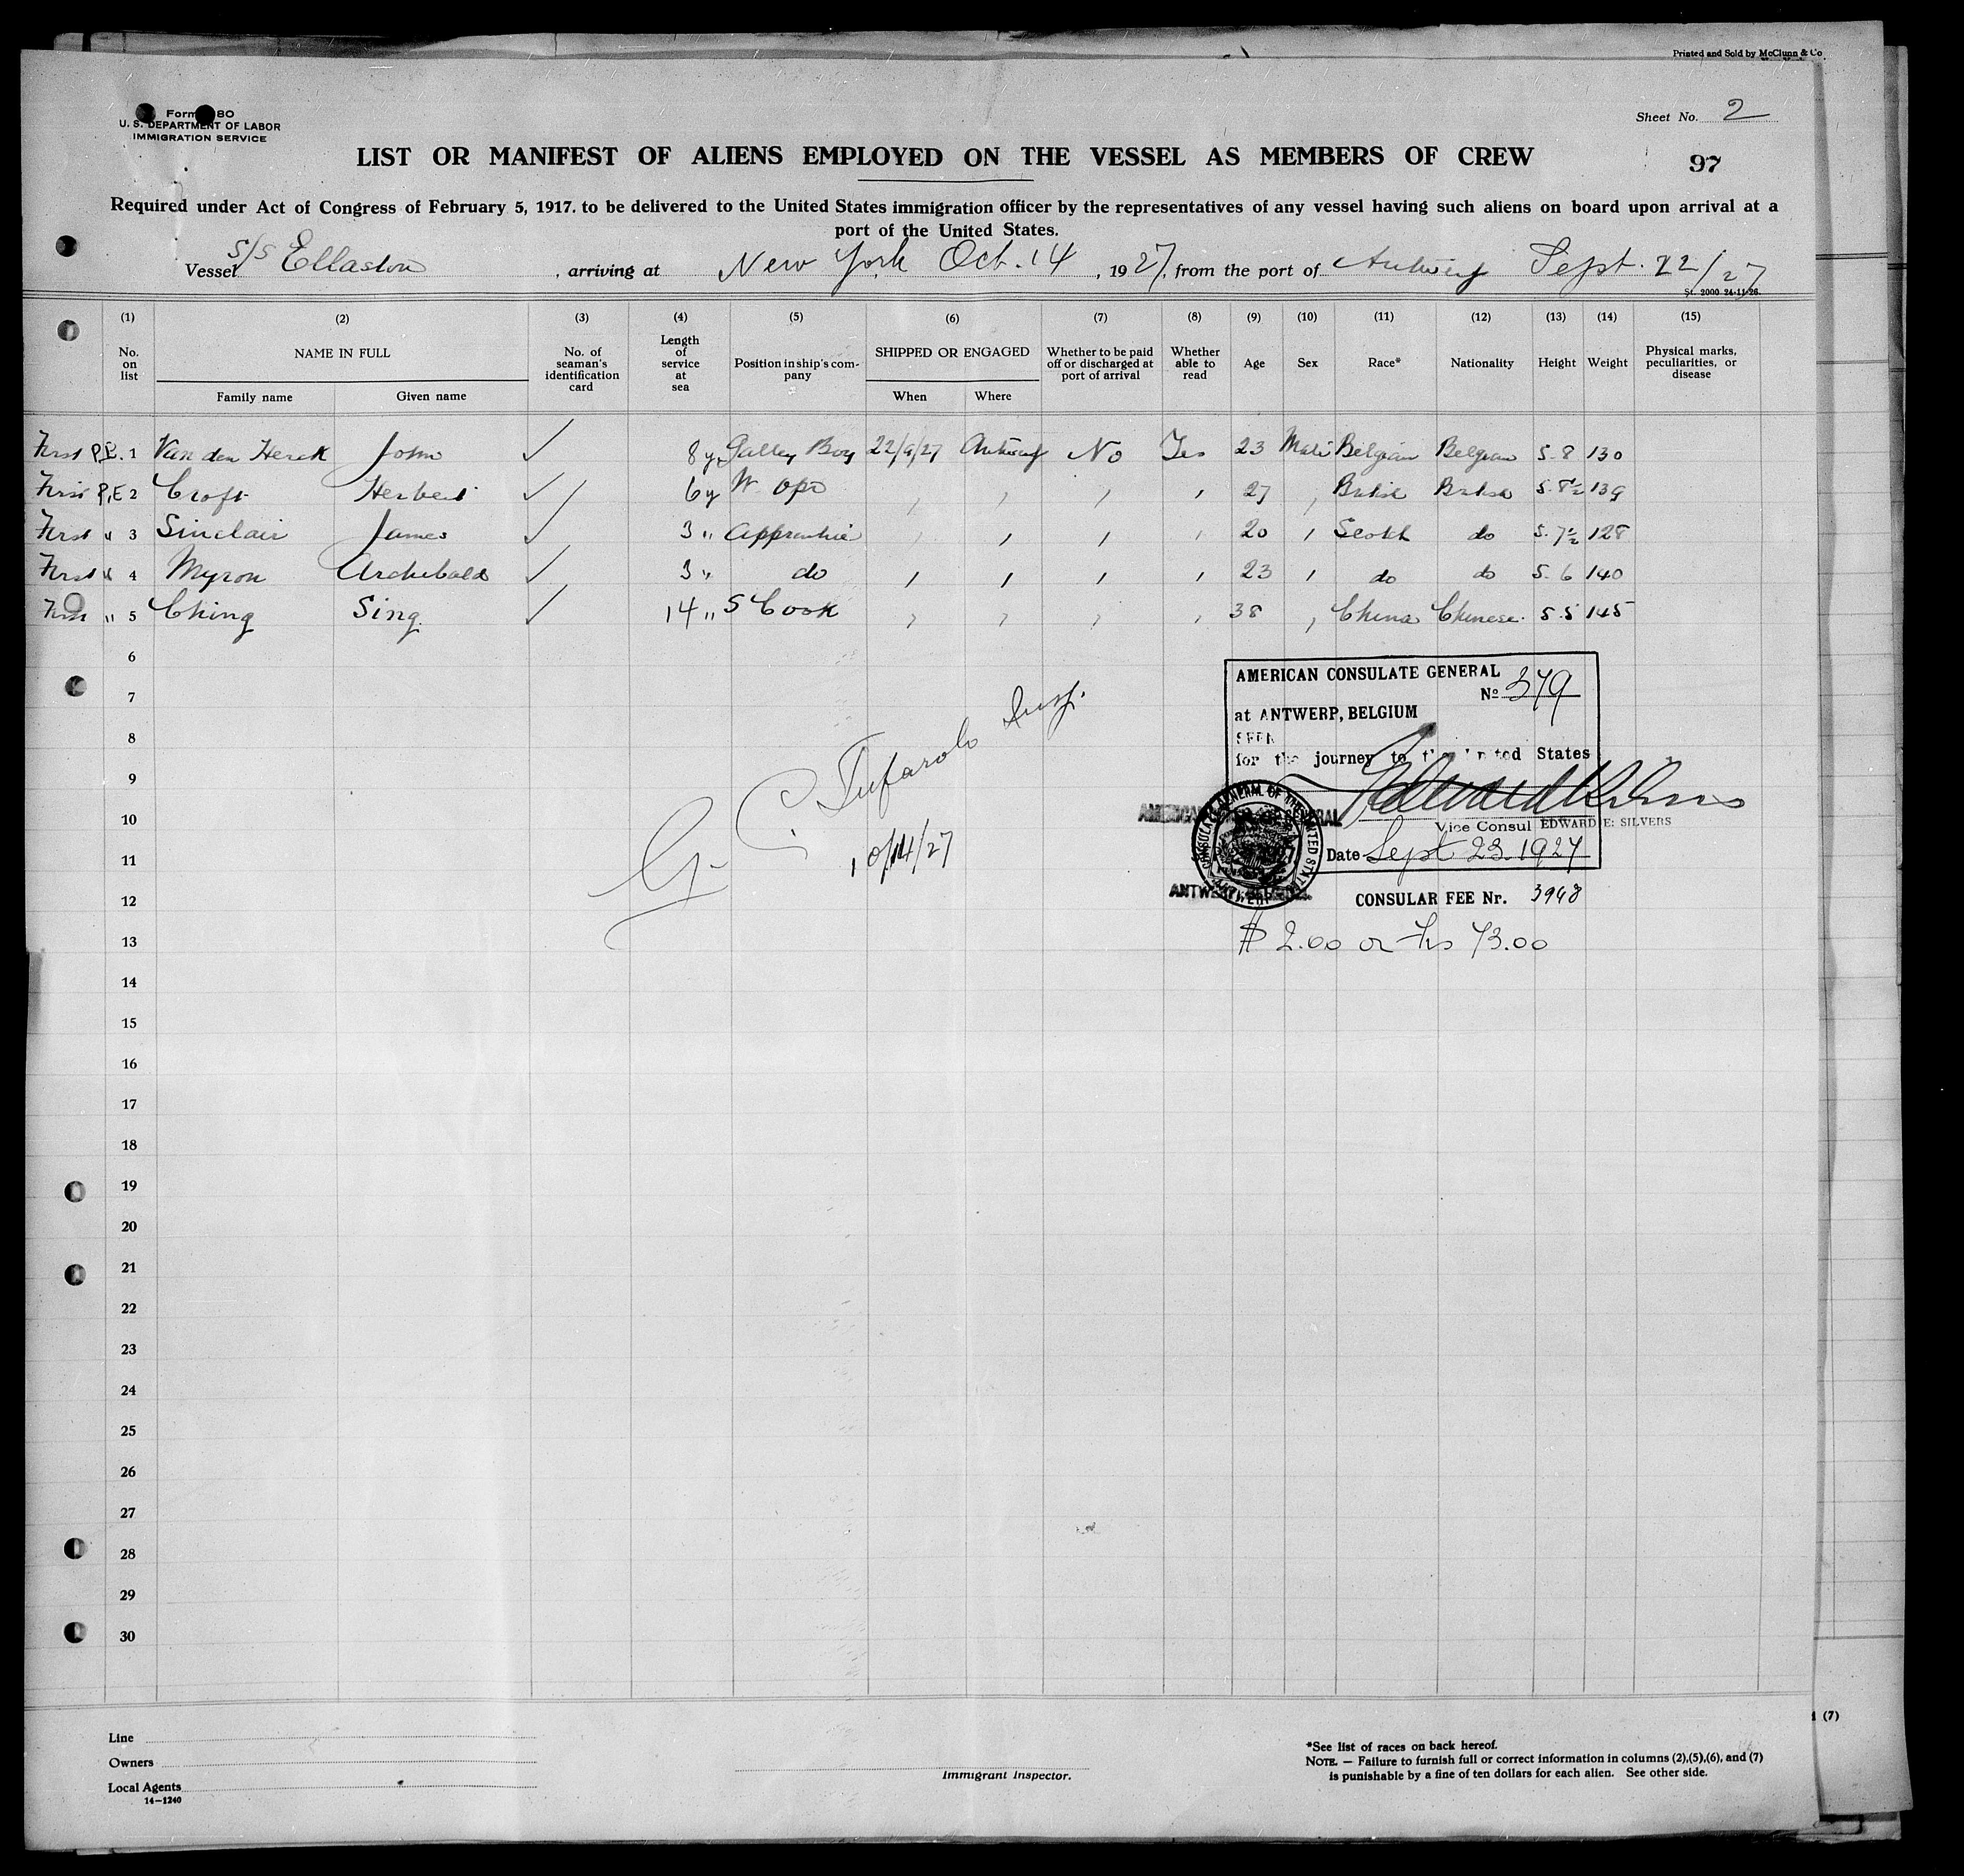 Printed and Sold by McClunn & Co
Form 80
U. S. DEPARTMENT OF LABOR
IMMIGRATION SERVICE
Sheet No. 2
LIST OR MANIFEST OF ALIENS EMPLOYED ON THE VESSEL AS MEMBERS OF CREW
97
Required under Act of Congress of February 5, 1917, to be delivered to the United States immigration officer by the representatives of any vessel having such aliens on board upon arrival at a
port of the United States.
Vessel S/S Ellaston, arriving at New York Oct. 14, 1927, from the port of Antwerp Sept. 22/27
St. 2000 24-11-26.
(1) (2) (3) (4) (5) (6) (7) (8) (9) (10) (11) (12) (13) (14) (15)
No. on list NAME IN FULL Family name Given name No. of seaman's identification card Length of service at sea Position in ship's company SHIPPED OR ENGAGED When Where Whether to be paid off or discharged at port of arrival Whether able to read Age Sex Race* Nationality Height Weight Physical marks, peculiarities, or disease
First P.E. 1 Van den Herck John ✓ 8 y Galley Boy 22/9/27 Antwerp No Yes 23 Male Belgian Belgian 5.8 130
First P.E 2 Croft Herbert ✓ 6 y W. Opr " " " " 27 " British British 5.8½ 139
First " 3 Sinclair James ✓ 3 " Apprentice " " " " 20 " Scotch do 5.7½ 128
First " 4 Myron Archibald ✓ 3 " do " " " " 23 " do do 5.6 140
First " 5 Ching Sing. ✓ 14 " S Cook " " " " 38 " China Chinese. 5.5 145
6
7
8
9
10
11
12
13
14
15
16
17
18
19
20
21
22
23
24
25
26
27
28
29
30
Tufarolo Insp.
10/14/27
AMERICAN CONSULATE GENERAL
No 379
at ANTWERP, BELGIUM
SEEN
for the journey to the United States
Vice Consul EDWARD E: SILVERS
Date Sept 23. 1927
CONSULAR FEE Nr. 3948
$ 2.00 or frs 73.00
Line
Owners
Local Agents
14—1240
Immigrant Inspector.
*See list of races on back hereof.
NOTE. — Failure to furnish full or correct information in columns (2),(5),(6), and (7)
is punishable by a fine of ten dollars for each alien. See other side.
(7)